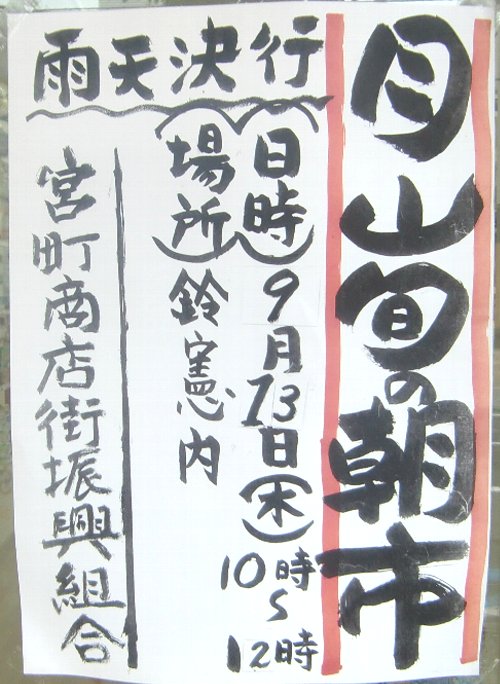 月山旬の朝市
雨天決行
(日時)9月13日(木)
10時〜12時
(場所)鈴憲内
宮町商店街振興組合